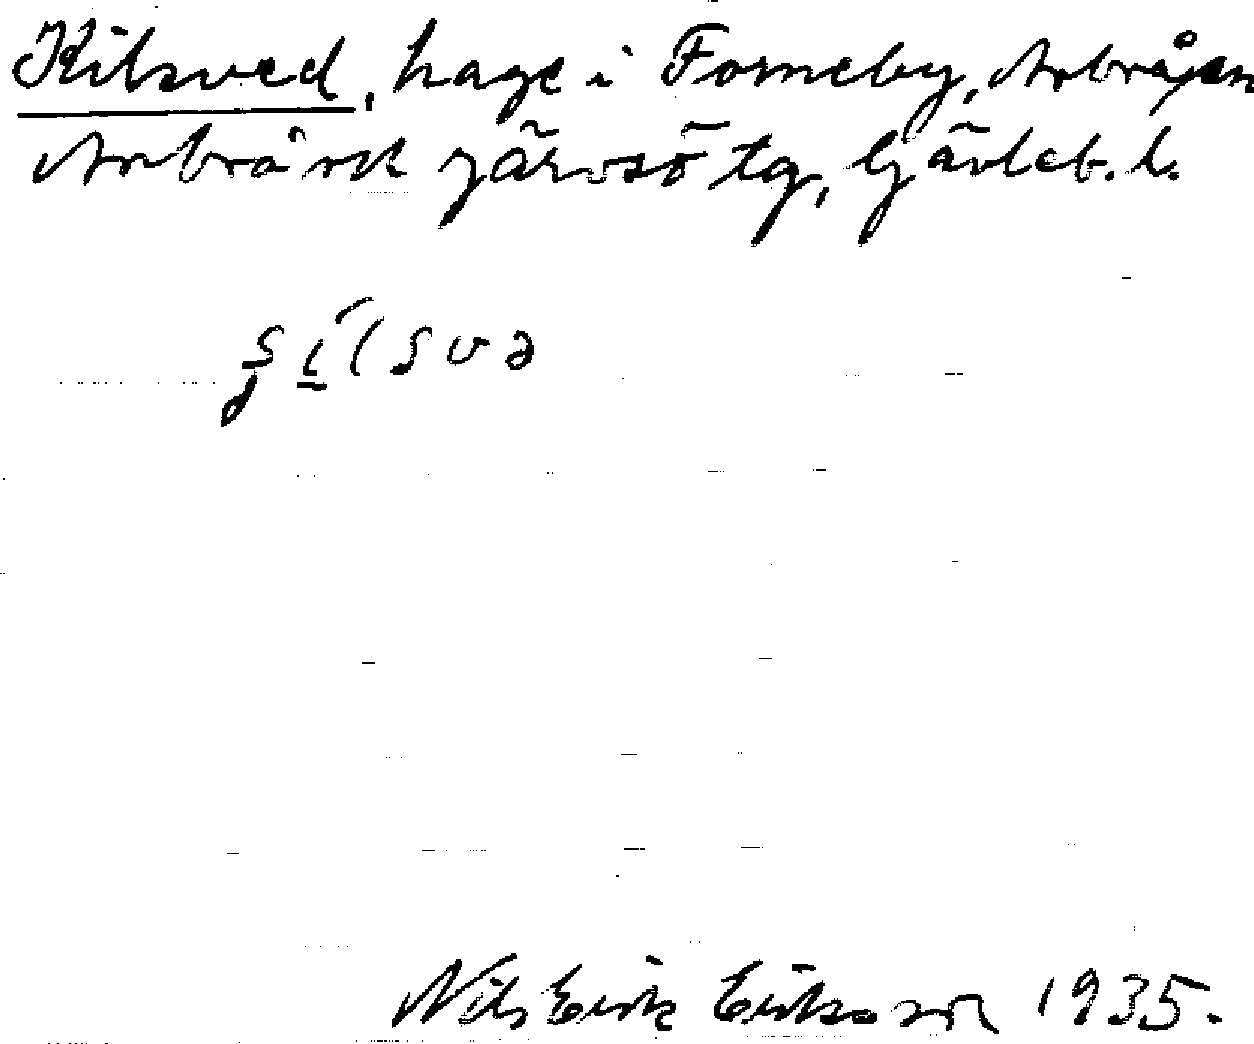 Kilsved, hage i Forneby, Arbråsn
Arbrå sk Järvsö tg, Gävleb. l.
Nils Erik Eriksson 1935.